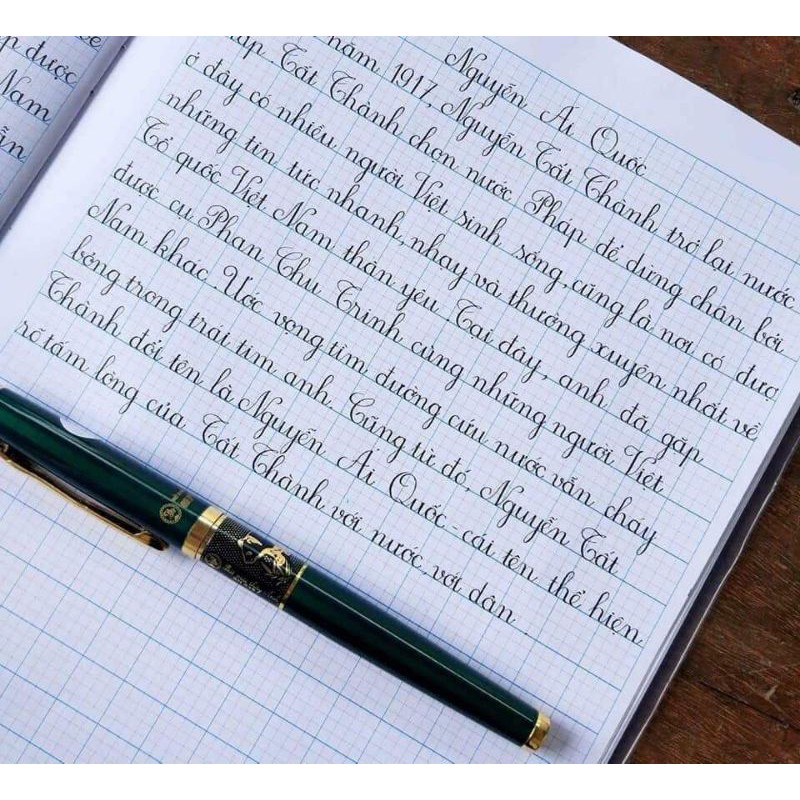 được
Nam
Nguyễn Ái Quốc
năm 1917, Nguyễn Tất Thành trở lại nước
áp. Tất Thành chọn nước Pháp để dừng chân bởi
ở đây có nhiều người Việt sinh sống, cũng là nơi có đượ
những tin tức nhanh, nhạy và thường xuyên nhất về
Tổ quốc Việt Nam thân yêu. Tại đây, anh đã gặp
được cụ Phan Chu Trinh cùng những người Việt
Nam khác. Ước vọng tìm đường cứu nước vẫn cháy
bỏng trong trái tim anh. Cũng từ đó, Nguyễn Tất
Thành đổi tên là Nguyễn Ái Quốc - cái tên thể hiện
rõ tấm lòng của Tất Thành với nước, với dân.